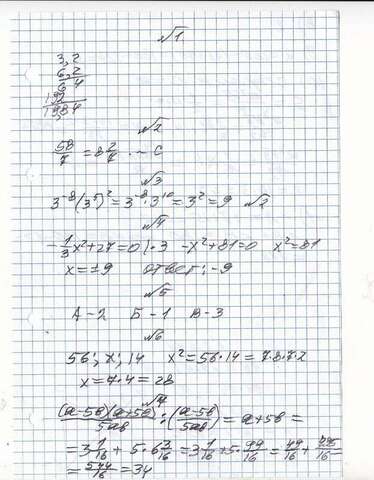 №1
3,2
6,2
64
192
19,84
№2
58/7 = 8 2/7 - C
№3
3⁻⁸(3⁵)² = 3⁻⁸·3¹⁰ = 3² = 9 №2
№4
-1/3x²+27=0 |·3 -x²+81=0 x²=81
x=±9 ответ: -9
№5
А-2 Б-1 В-3
№6
56; x; 14 x²=56·14=7·8·7·2
x=7·4=28
№7
(a-5b)(a+5b)/5ab : (a-5b)/5ab = a+5b =
= 3 1/16 + 5·6 3/16 = 3 1/16 + 5·99/16 = 49/16 + 495/16 =
= 544/16 = 34